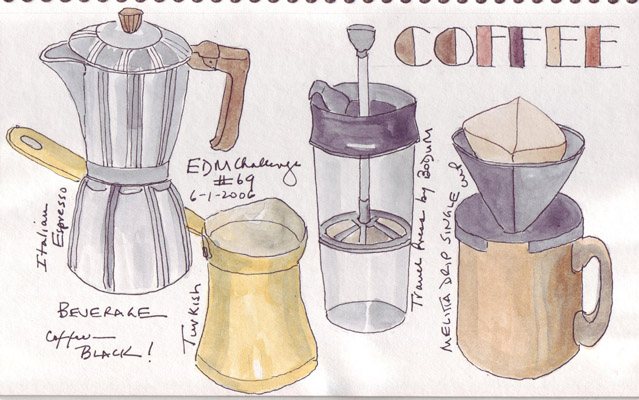 COFFEE
EDM Challenge
#69
6-1-2006
Italian
Espresso
Turkish
Travel Press by BODUM
MELITTA DRIP SINGLE cup
BEVERAGE
Coffee—
BLACK!